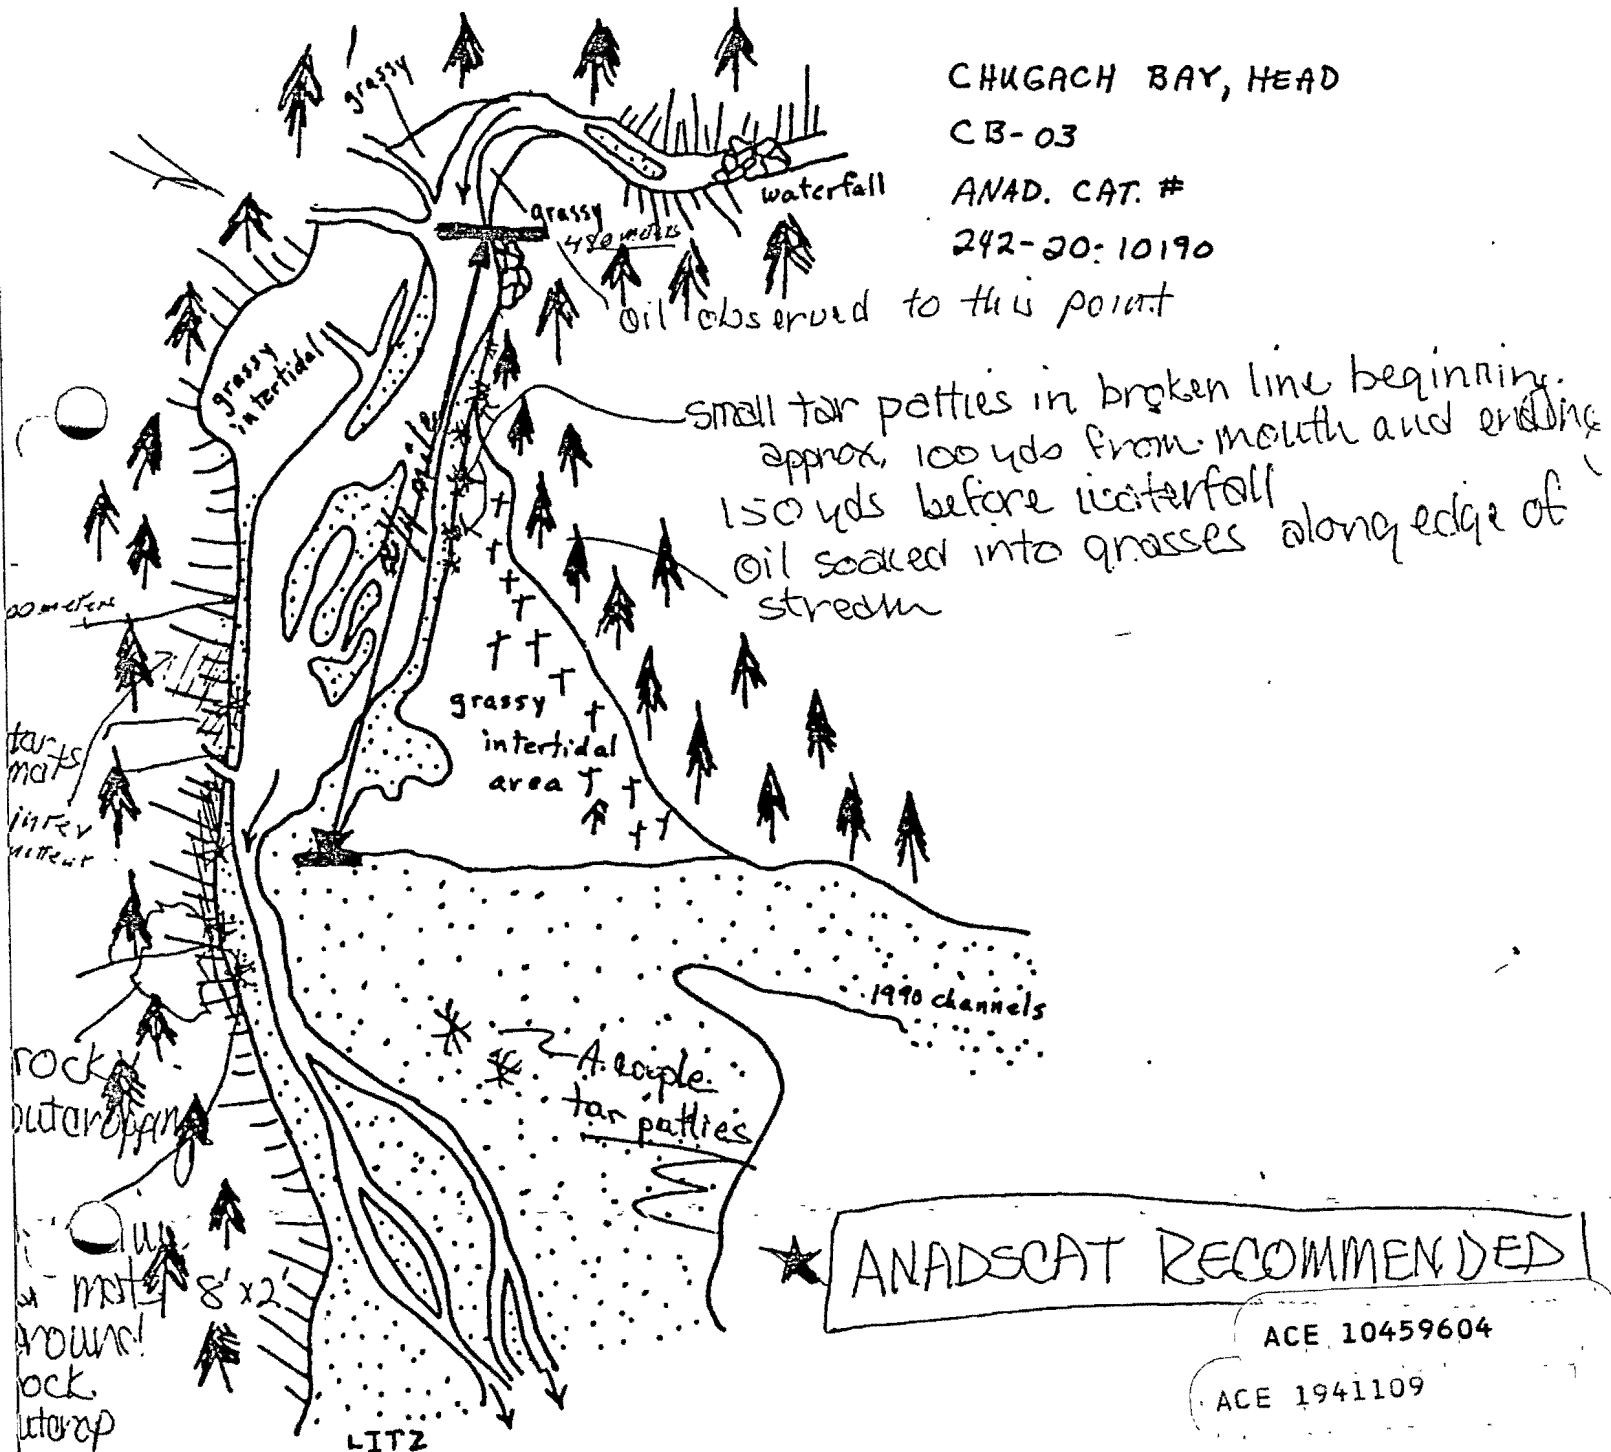 CHUGACH BAY, HEAD
CB-03
ANAD. CAT. #
242-20-10190
grassy
waterfall
grassy
480 meters
oil observed to this point
grassy
intertidal
small tar patties in broken line beginning
approx. 100 yds from mouth and ending
150 yds before waterfall
oil soaked into grasses along edge of
stream
00 meters
tar
mats
grassy
intertidal
area
inter
1990 channels
rocky
outcropping
A couple
tar patties
8' x 2'
round!
ock
utcrop
ANADSCAT RECOMMENDED
ACE 10459604
ACE 1941109
LITZ